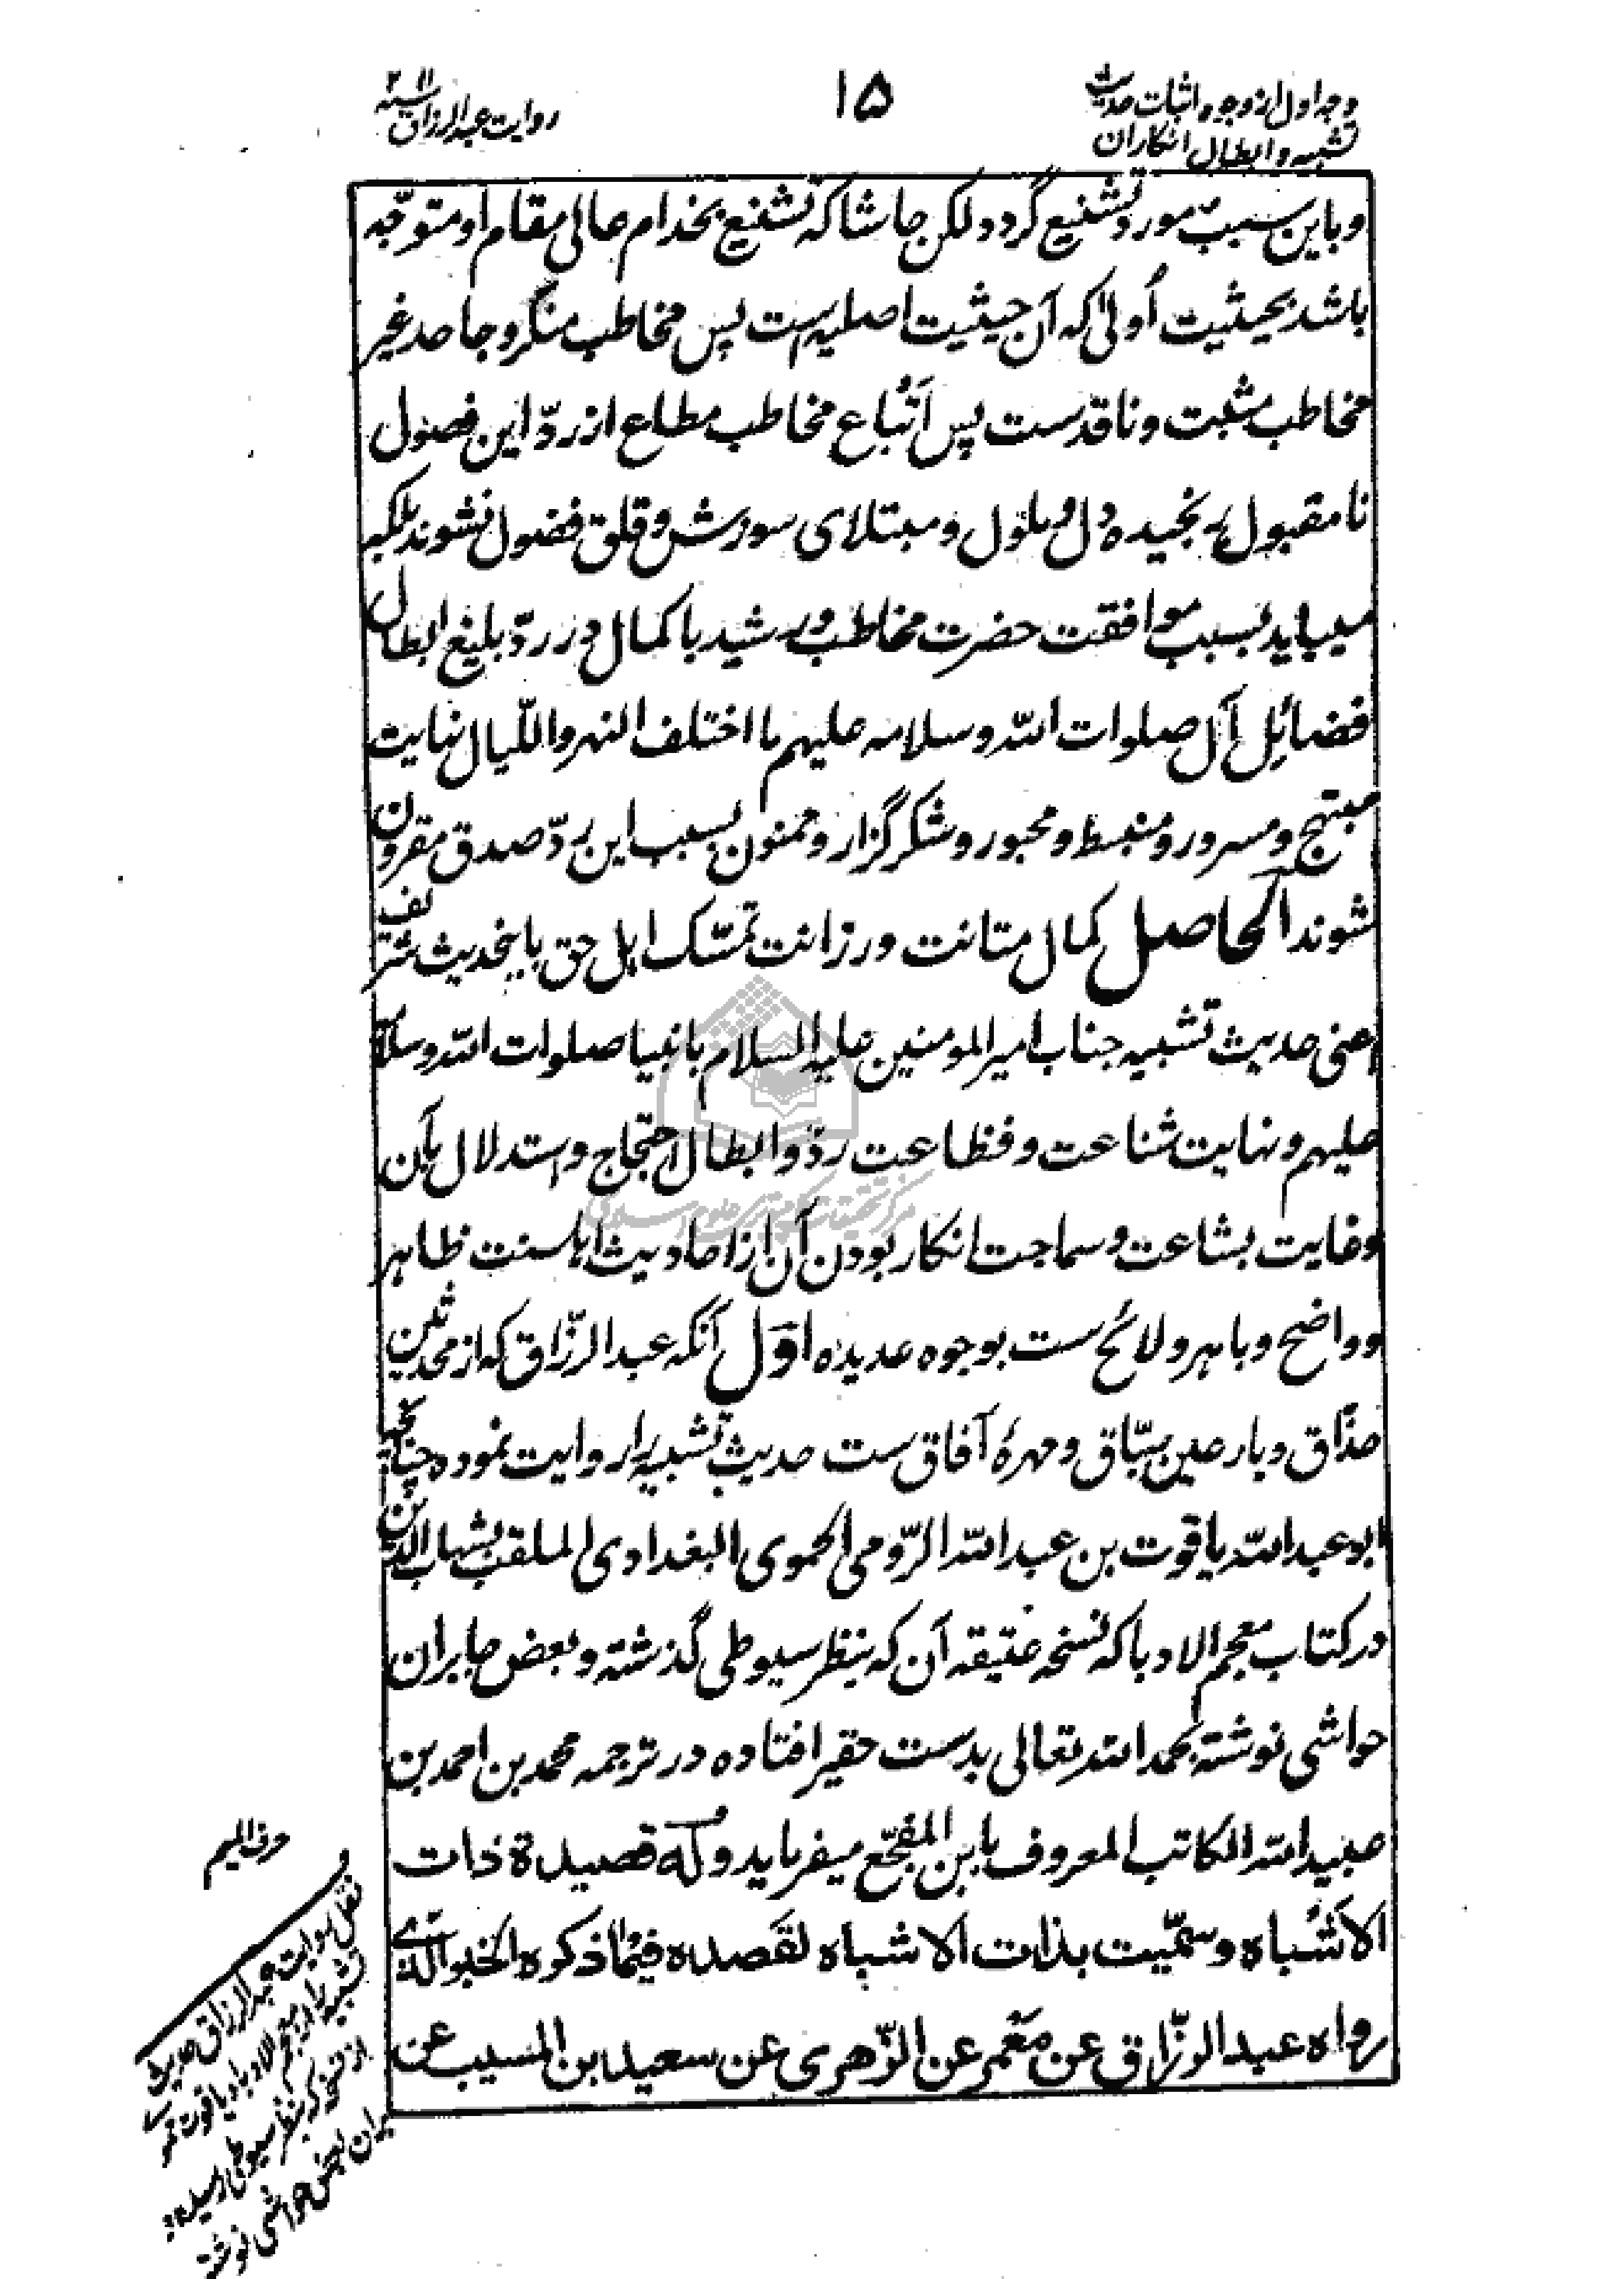 وجه اول از وجوه اثبات حدیث
تشبیه و ابطال انکار آن
۱۵
روایت عبدالرزاق
و باین سبب مورد تشنیع گردد لکن حاشا که تشنیع بخدام عالی مقام او متوجّه
باشد بحیثیت اُولیٰ که آن حیثیت اصلیه است پس مخاطب منکر و جاحد غیر
مخاطب مثبت و ناقد ست پس اَتباع مخاطب مطاع از ردّ این فصول
نا مقبول رنجیده دل و ملول و مبتلای سوزش و قلق فضول نشوند بلکه
میباید بسبب موافقت حضرت مخاطب و رشید با کمال در ردّ بلیغ ابطال
فضائل آل صلوات الله و سلامه علیهم ما اختلف النهر و اللّیال نهایت
مبتهج و مسرور و منبسط و محبور و شکرگزار و ممنون بسبب این ردّ صدق مقرون
شوند الحاصل کمال متانت و رزانت تمسّک اهل حق باینحدیث شریف
اعنی حدیث تشبیه جناب امیر المومنین علیه السلام بانبیا صلوات الله و سلامه
علیهم و نهایت شناعت و فظاعت ردّ و ابطال احتجاج و استدلال بآن
و غایت بشاعت و سماجت انکار بودن آن از احادیث اهلسنت ظاهر
و واضح و باهر و لائح ست بوجوه عدیده اوّل آنکه عبد الرزّاق که از محدثین
حذّاق و بارعین سبّاق و مهرهٔ آفاق ست حدیث تشبیه را روایت نموده چنانچه
ابو عبد الله یاقوت بن عبد الله الرّومی الحموی البغدادی الملقب بشهاب الدین
در کتاب معجم الادبا که نسخه عتیقه آن که بنظر سیوطی گذشته و بعض جا بران
حواشی نوشته بحمد الله تعالی بدست حقیر افتاده در ترجمه محمد بن احمد بن
عبید الله الکاتب المعروف بابن المفجّع میفرماید وَلَهُ قصیدة ذات
الاَشباه وسمّیت بذات الاشباه لقَصده فیما ذکره الخبر الذی
رواه عبد الرزّاق عن مَعْمر عن الزّهری عن سعید بن المسیب عن
حرف المیم
نقل روایت عبدالرزاق حدیث
تشبیه را در معجم الادبا یاقوت حموی
از نسخه که بنظر سیوطی رسیده
بران بعض حواشی نوشته